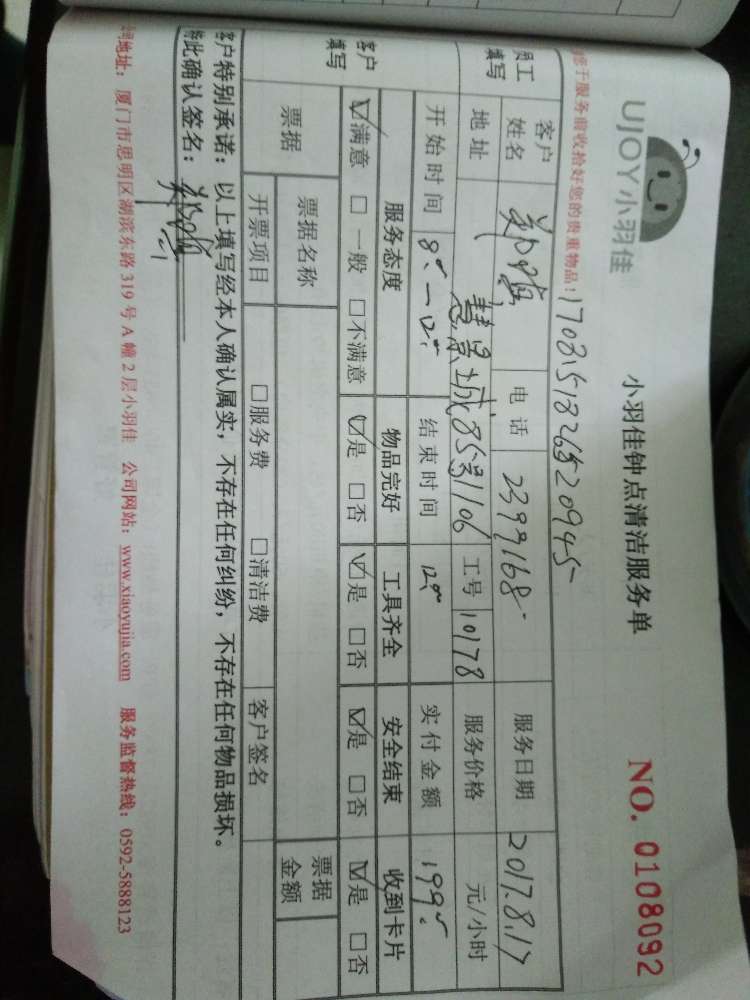 UJOY小羽佳
小羽佳钟点清洁服务单
NO. 0108092
于服务前收拾好您的贵重物品！1703151826520945
员工填写
客户姓名 电话 2399168 服务日期 2017.8.17
地址 慧景城853 1106 工号 10178 服务价格 元/小时
开始时间 8:00—12:00 结束时间 12:00 实付金额 199
客户填写
服务态度 物品完好 工具齐全 安全结束 收到卡片
☑满意 □一般 □不满意 ☑是 □否 ☑是 □否 ☑是 □否 ☑是 □否
票据 票据名称 票据金额
开票项目 □服务费 □清洁费 客户签名
客户特别承诺：以上填写经本人确认属实，不存在任何纠纷，不存在任何物品损坏。
特此确认签名：
地址：厦门市思明区湖滨东路319号A幢2层小羽佳 公司网站：www.xiaoyujia.com 服务监督热线：0592-5888123